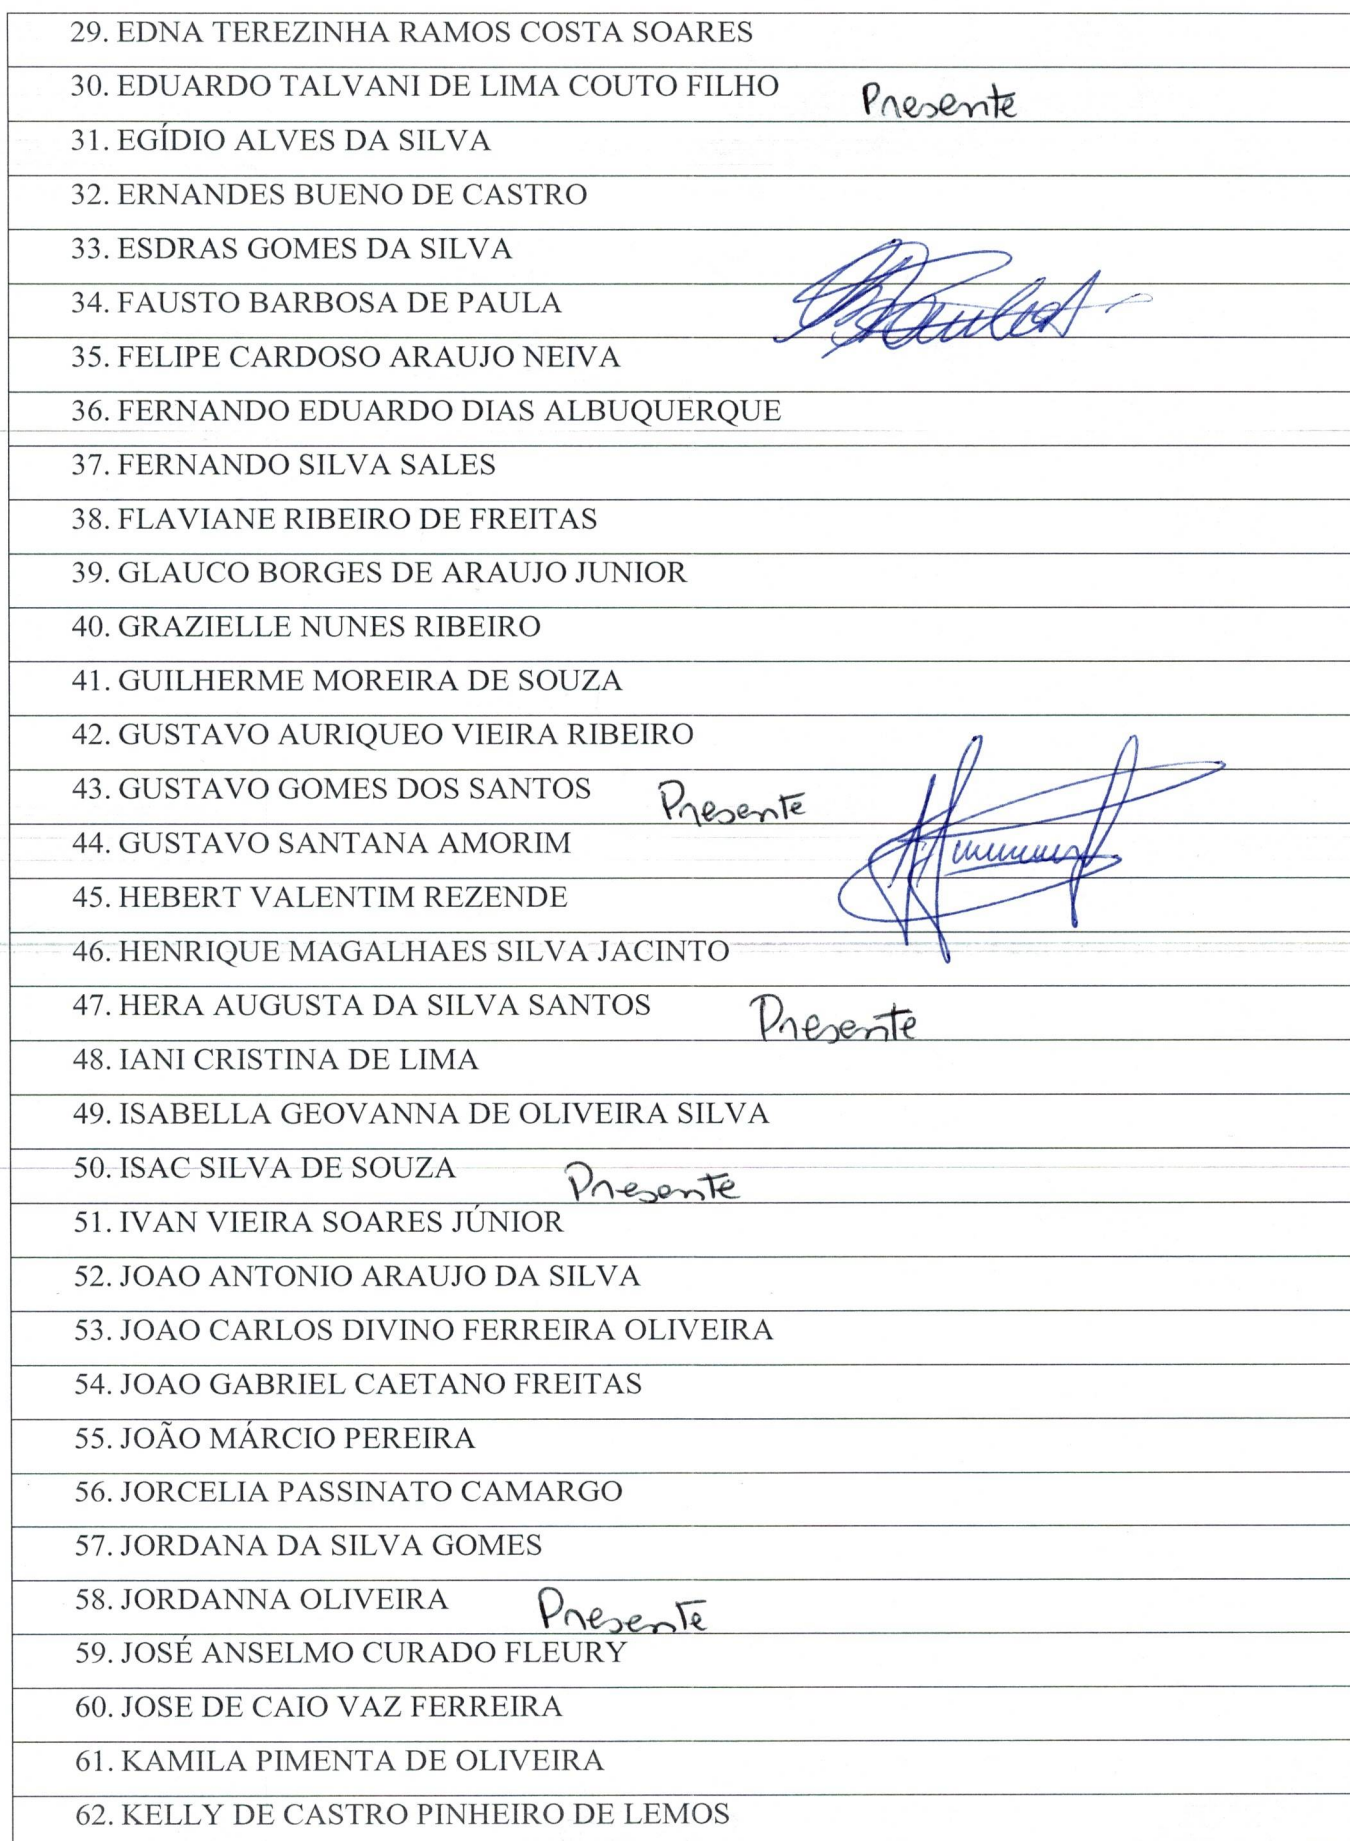 29. EDNA TEREZINHA RAMOS COSTA SOARES
30. EDUARDO TALVANI DE LIMA COUTO FILHO Presente
31. EGÍDIO ALVES DA SILVA
32. ERNANDES BUENO DE CASTRO
33. ESDRAS GOMES DA SILVA
34. FAUSTO BARBOSA DE PAULA
35. FELIPE CARDOSO ARAUJO NEIVA
36. FERNANDO EDUARDO DIAS ALBUQUERQUE
37. FERNANDO SILVA SALES
38. FLAVIANE RIBEIRO DE FREITAS
39. GLAUCO BORGES DE ARAUJO JUNIOR
40. GRAZIELLE NUNES RIBEIRO
41. GUILHERME MOREIRA DE SOUZA
42. GUSTAVO AURIQUEO VIEIRA RIBEIRO
43. GUSTAVO GOMES DOS SANTOS Presente
44. GUSTAVO SANTANA AMORIM
45. HEBERT VALENTIM REZENDE
46. HENRIQUE MAGALHAES SILVA JACINTO
47. HERA AUGUSTA DA SILVA SANTOS Presente
48. IANI CRISTINA DE LIMA
49. ISABELLA GEOVANNA DE OLIVEIRA SILVA
50. ISAC SILVA DE SOUZA Presente
51. IVAN VIEIRA SOARES JÚNIOR
52. JOAO ANTONIO ARAUJO DA SILVA
53. JOAO CARLOS DIVINO FERREIRA OLIVEIRA
54. JOAO GABRIEL CAETANO FREITAS
55. JOÃO MÁRCIO PEREIRA
56. JORCELIA PASSINATO CAMARGO
57. JORDANA DA SILVA GOMES
58. JORDANNA OLIVEIRA Presente
59. JOSÉ ANSELMO CURADO FLEURY
60. JOSE DE CAIO VAZ FERREIRA
61. KAMILA PIMENTA DE OLIVEIRA
62. KELLY DE CASTRO PINHEIRO DE LEMOS